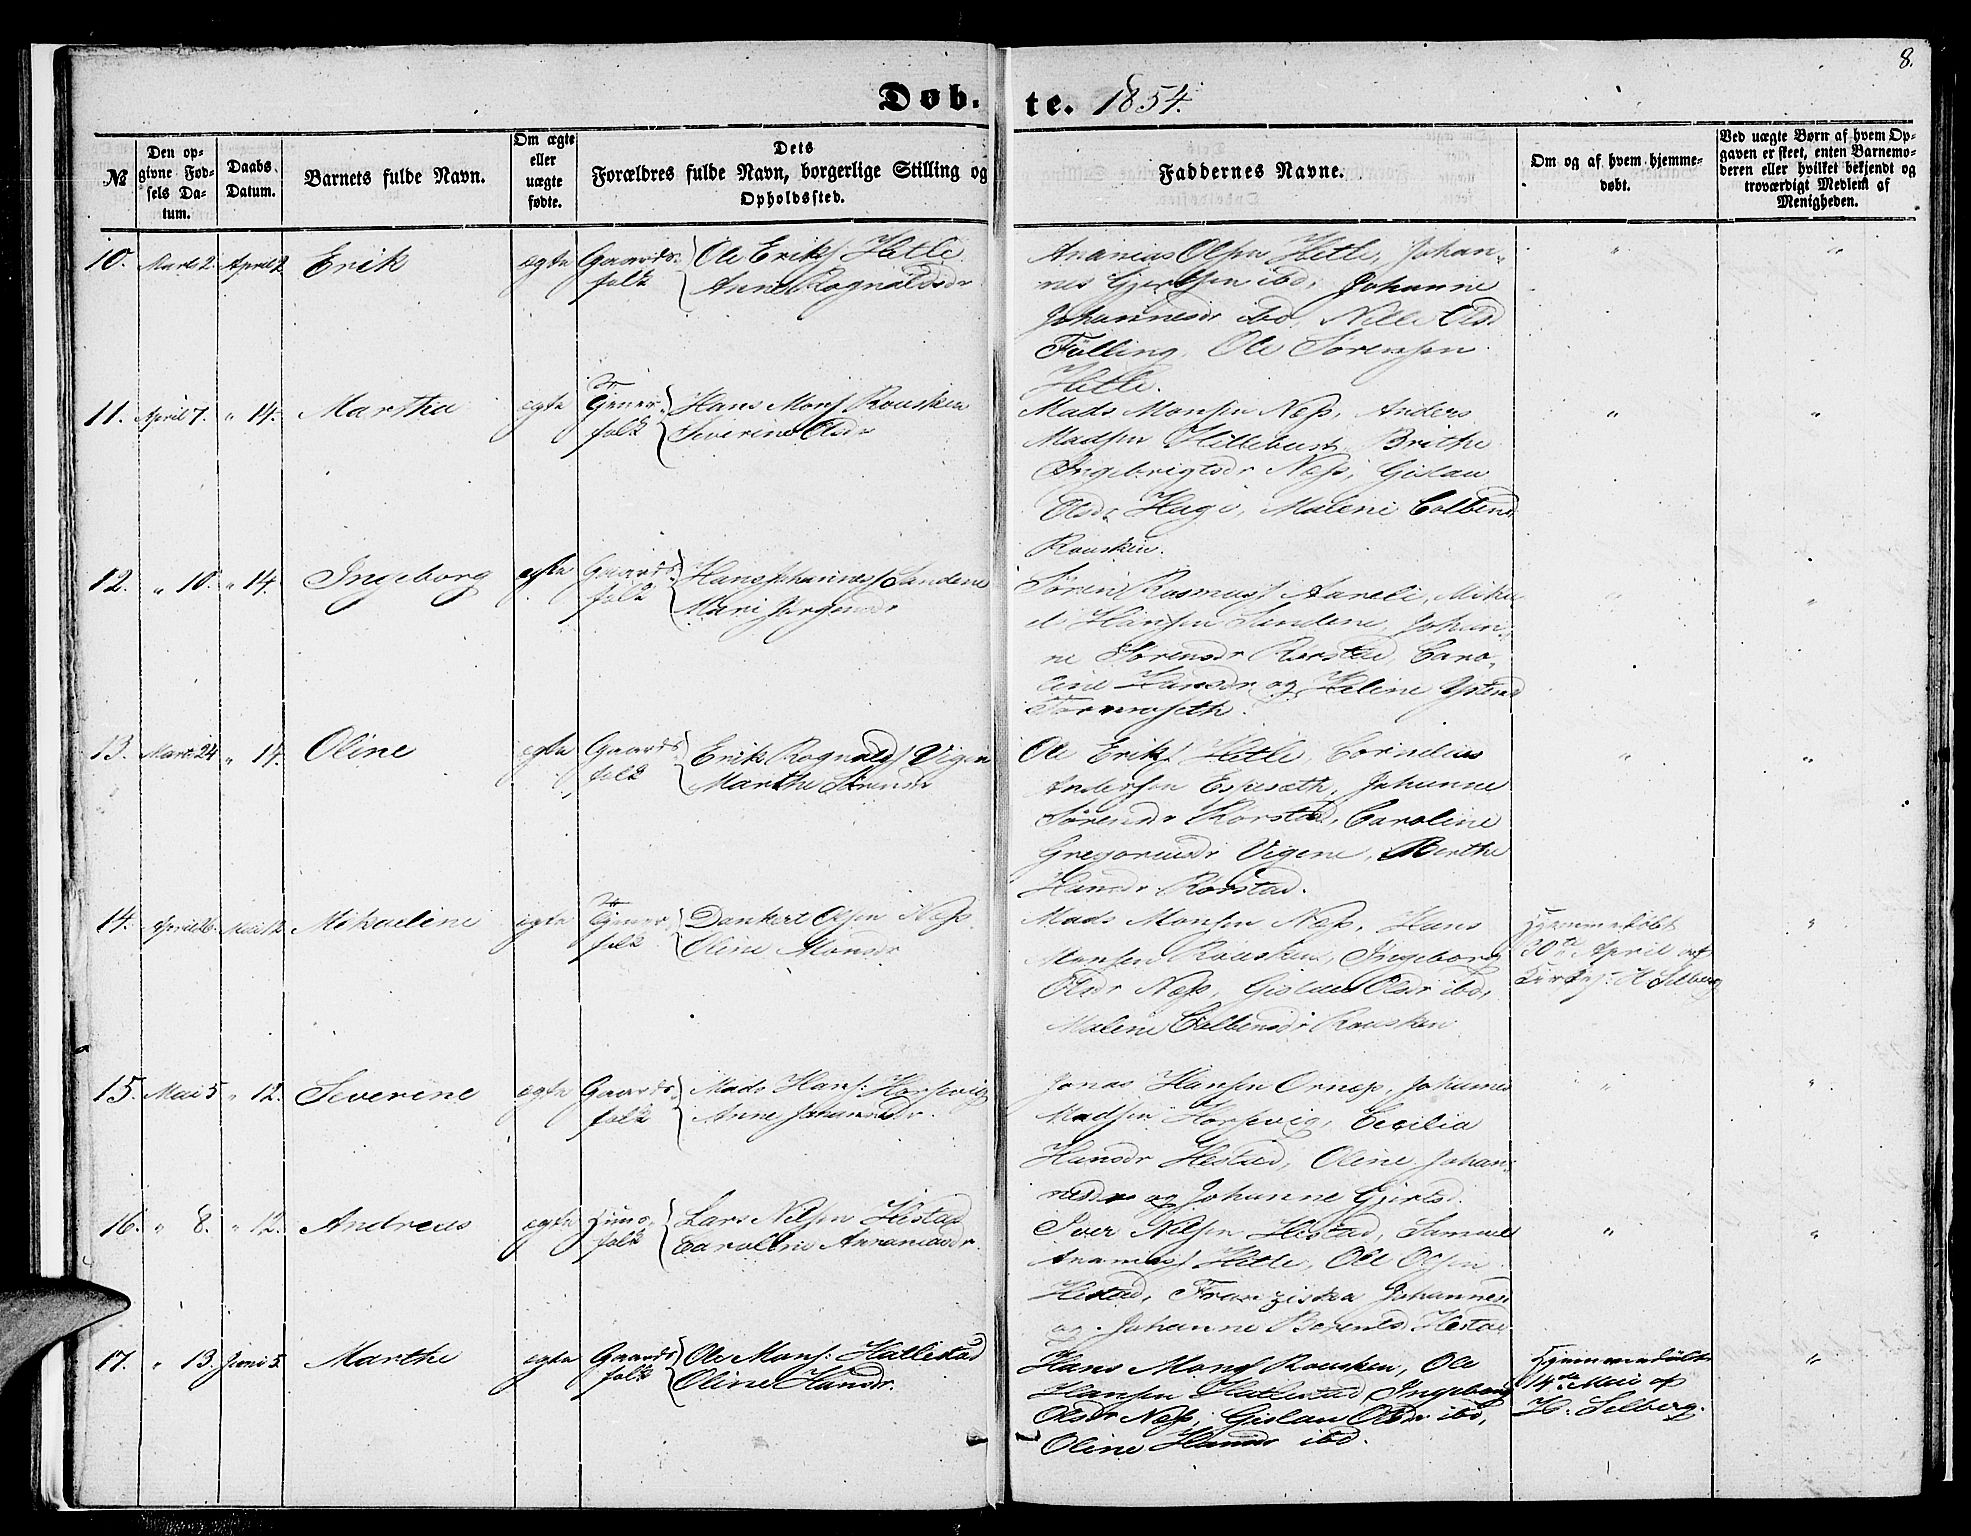 8.
Døb. te. 1854.
№
Den op-
givne Fød-
sels Da-
tum.
Daabs.
Datum.
Barnets fulde Navn.
Om ægte
eller
uægte
fødte.
Dets
Forældres fulde Navn, borgerlige Stilling og
Opholdssted.
Faddernes Navne.
Om og af hvem hjemme-
døbt.
Ved uægte Børn af hvem Op-
gaven er skeet, enten Barnemo-
deren eller hvilket bekjendt og
troværdigt Medlem af
Menigheden.
10. Marts 2. April 2. Erik egte Gaards- Ole Eriks. Hetle
folk Anne Rognaldsdr
Ananias Olsen Hetle, Johan-
nes Gjertsen ibd, Johanne
Johannesdr ibd, Nille Olsd
Fölling, Ole Sørensen
Hetle.
11. April 7. " 14. Martha egte Tjener- Hans Mons. Rousken
folk Severine Olsdr
Mads Monsen Næss, Anders
Madsen Hillebust, Brithe
Ingebrigtsdr Næss, Gislau
Olsdr Hage, Malene Colbensd
Rousken.
12. " 10. " 14. Ingeborg egte Gaards- Hans Johanness. Sandene
folk Mari Jørgensdr
Søren Rasmuss. Aareli, Mika-
el Hansen Sandene, Johan-
ne Sørensdr Rørstad, Caro-
line Hansdr og Helene
13. Marts 24 " 14. Oline egte Gaards- Erik Rognalds. Vigen
folk Marthe Sørensdr
Ole Eriks. Hetle, Cornelius
Andersen Espesæth, Johanne
Sørensdr Rørstad, Caroline
Gregoriusdr Vigene, Marthe
Hansdr Rørstad.
14. April 26. Mai 12. Mikaeline egte Tjener- Dankert Olsen Næss.
folk Oline Monsdr
Mads Monsen Næss, Hans
Monsen Rousken, Ingeborg
Olsdr Næss, Gislau Olsdr ibd,
Malene Colbensdr Rousken
Hjemmedøbt
30te April af
Kirkes. H Selberg
15. Mai 5 " 12. Severine egte Gaards- Mads Hans. Horsevig
folk Anne Johansdr.
Jonas Hansen Ornæs, Johannes
Madsen Horsevig, Cecilia
Hansdr Hestad, Oline Johan-
nesdr og Johanne Gjertsd.
16. " 8. " 12. Andreas egte Huus- Lars Nilsen Hestad
folk Caroline Ananiasdr.
Iver Nilsen Hestad, Samuel
Ananias. Hetle, Ole Olsen
Hestad, Franziska Johannesd
og Johanne Berentsd. Hestad
17. " 13. Juni 5. Marthe egte Gaards- Ole Mons. Hatlestad
folk Oline Hansdr.
Hans Mons. Rousken, Ole
Hansen Hatlestad, Ingeborg
Olsdr Næss, Gislau Olsdr ibd,
Oline Hansdr ibd.
Hjemmedøbt
14de Mai af
H. Selberg.